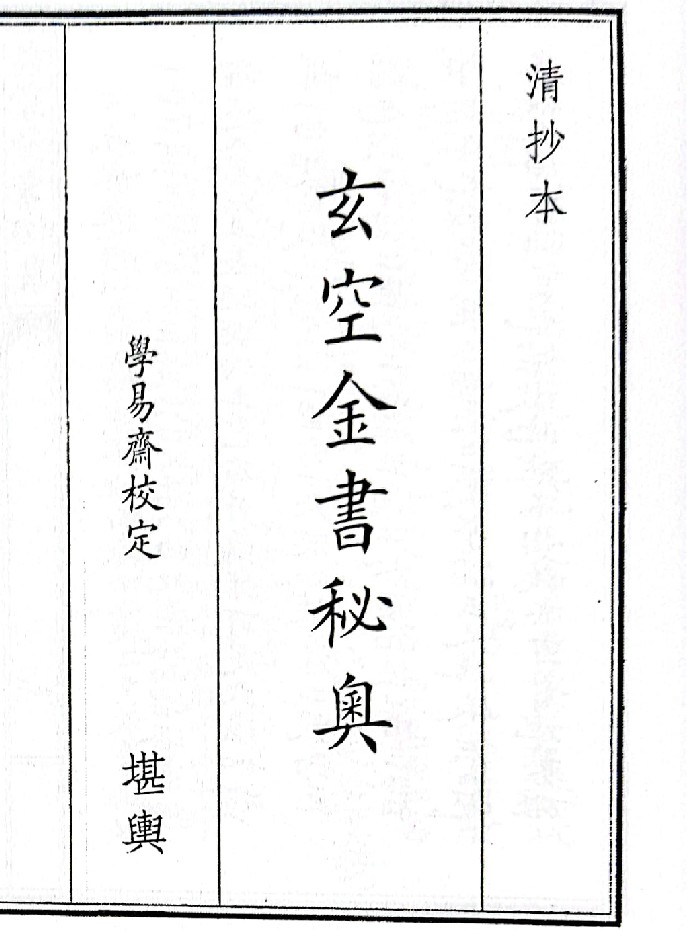 清抄本
玄空金書秘奧
學易齋校定
堪輿